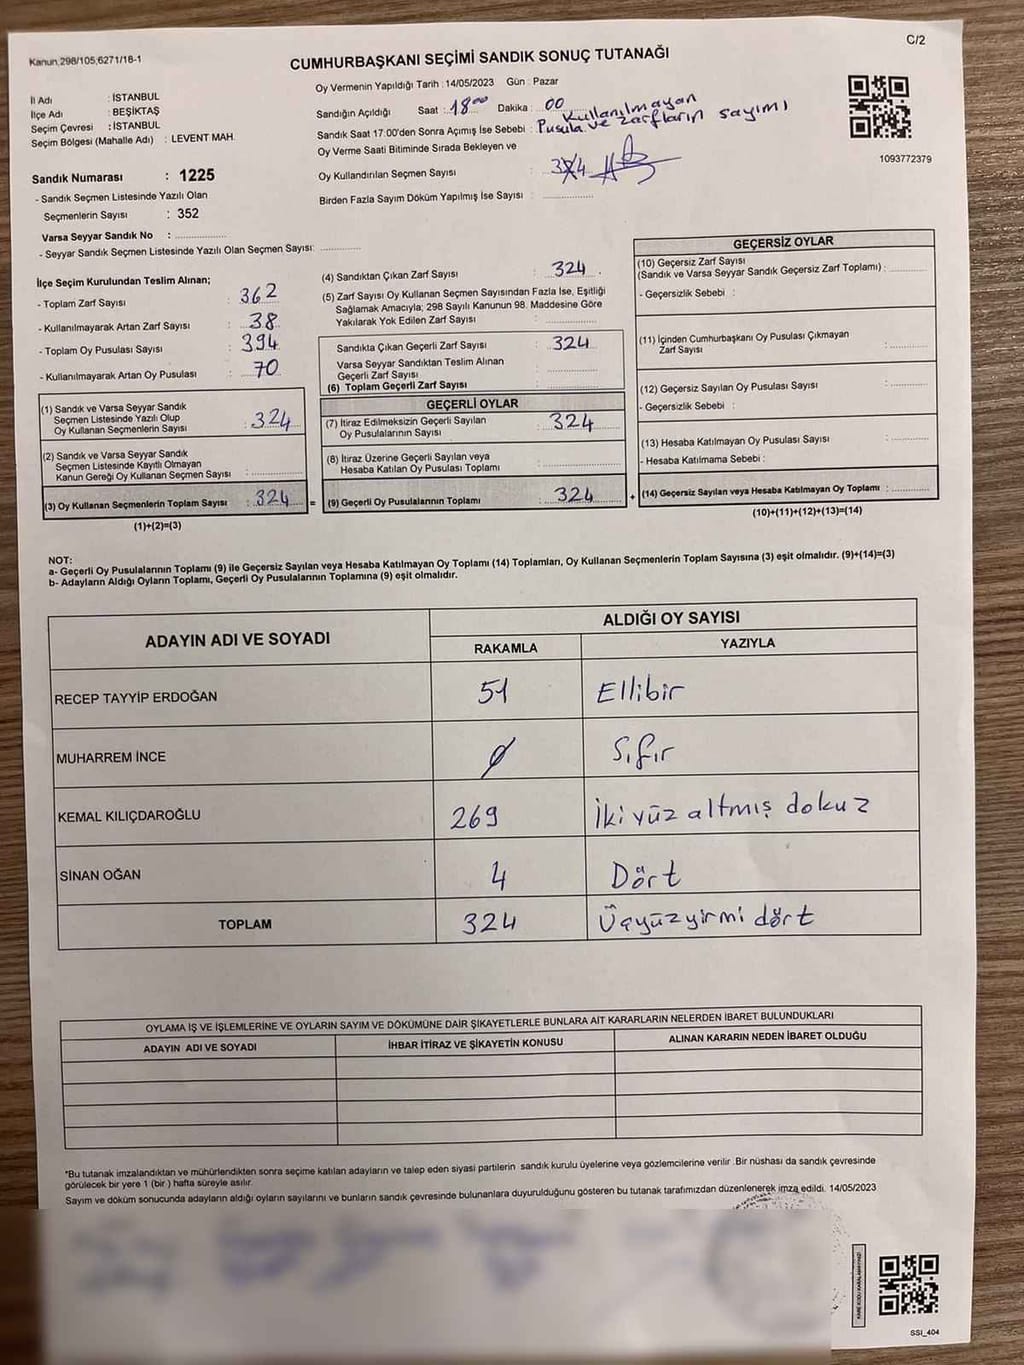 Kanun,298/105,6271/18-1
C/2
CUMHURBAŞKANI SEÇİMİ SANDIK SONUÇ TUTANAĞI
İl Adı : İSTANBUL
İlçe Adı : BEŞİKTAŞ
Seçim Çevresi : İSTANBUL
Seçim Bölgesi (Mahalle Adı) : LEVENT MAH.
Oy Vermenin Yapıldığı Tarih : 14/05/2023 Gün : Pazar
Sandığın Açıldığı Saat : 18⁰⁰ Dakika : 00
Sandık Saat 17:00'den Sonra Açımış İse Sebebi : Kullanılmayan
Pusula ve zarfların sayımı
Oy Verme Saati Bitiminde Sırada Bekleyen ve
Oy Kullandırılan Seçmen Sayısı :
Birden Fazla Sayım Döküm Yapılmış İse Sayısı : ................
1093772379
Sandık Numarası : 1225
- Sandık Seçmen Listesinde Yazılı Olan
Seçmenlerin Sayısı : 352
Varsa Seyyar Sandık No : ................
- Seyyar Sandık Seçmen Listesinde Yazılı Olan Seçmen Sayısı: .............
İlçe Seçim Kurulundan Teslim Alınan;
- Toplam Zarf Sayısı : 362
- Kullanılmayarak Artan Zarf Sayısı : 38
- Toplam Oy Pusulası Sayısı : 394
- Kullanılmayarak Artan Oy Pusulası : 70
(1) Sandık ve Varsa Seyyar Sandık
Seçmen Listesinde Yazılı Olup
Oy Kullanan Seçmenlerin Sayısı : 324
(2) Sandık ve Varsa Seyyar Sandık
Seçmen Listesinde Kayıtlı Olmayan
Kanun Gereği Oy Kullanan Seçmen Sayısı : ................
(3) Oy Kullanan Seçmenlerin Toplam Sayısı : 324 =
(1)+(2)=(3)
(4) Sandıktan Çıkan Zarf Sayısı : 324
(5) Zarf Sayısı Oy Kullanan Seçmen Sayısından Fazla İse, Eşitliği
Sağlamak Amacıyla; 298 Sayılı Kanunun 98. Maddesine Göre
Yakılarak Yok Edilen Zarf Sayısı : ................
Sandıkta Çıkan Geçerli Zarf Sayısı : 324
Varsa Seyyar Sandıktan Teslim Alınan
Geçerli Zarf Sayısı : ................
(6) Toplam Geçerli Zarf Sayısı : ................
GEÇERLİ OYLAR
(7) İtiraz Edilmeksizin Geçerli Sayılan
Oy Pusulalarının Sayısı : 324
(8) İtiraz Üzerine Geçerli Sayılan veya
Hesaba Katılan Oy Pusulası Toplamı : ................
(9) Geçerli Oy Pusulalarının Toplamı : 324 +
GEÇERSİZ OYLAR
(10) Geçersiz Zarf Sayısı
(Sandık ve Varsa Seyyar Sandık Geçersiz Zarf Toplamı) : ............
- Geçersizlik Sebebi :
(11) İçinden Cumhurbaşkanı Oy Pusulası Çıkmayan
Zarf Sayısı : ............
(12) Geçersiz Sayılan Oy Pusulası Sayısı : ............
- Geçersizlik Sebebi :
(13) Hesaba Katılmayan Oy Pusulası Sayısı : ............
- Hesaba Katılmama Sebebi :
(14) Geçersiz Sayılan veya Hesaba Katılmayan Oy Toplamı : ............
(10)+(11)+(12)+(13)=(14)
NOT:
a- Geçerli Oy Pusulalarının Toplamı (9) ile Geçersiz Sayılan veya Hesaba Katılmayan Oy Toplamı (14) Toplamları, Oy Kullanan Seçmenlerin Toplam Sayısına (3) eşit olmalıdır. (9)+(14)=(3)
b- Adayların Aldığı Oyların Toplamı, Geçerli Oy Pusulalarının Toplamına (9) eşit olmalıdır.
ADAYIN ADI VE SOYADI
ALDIĞI OY SAYISI
RAKAMLA YAZIYLA
RECEP TAYYİP ERDOĞAN 51 Ellibir
MUHARREM İNCE 0 Sıfır
KEMAL KILIÇDAROĞLU 269 İkiyüz altmış dokuz
SİNAN OĞAN 4 Dört
TOPLAM 324 Üçyüzyirmi dört
OYLAMA İŞ VE İŞLEMLERİNE VE OYLARIN SAYIM VE DÖKÜMÜNE DAİR ŞİKAYETLERLE BUNLARA AİT KARARLARIN NELERDEN İBARET BULUNDUKLARI
ADAYIN ADI VE SOYADI İHBAR İTİRAZ VE ŞİKAYETİN KONUSU ALINAN KARARIN NEDEN İBARET OLDUĞU
*Bu tutanak imzalandıktan ve mühürlendikten sonra seçime katılan adayların ve talep eden siyasi partilerin sandık kurulu üyelerine veya gözlemcilerine verilir .Bir nüshası da sandık çevresinde
görülecek bir yere 1 (bir ) hafta süreyle asılır.
Sayım ve döküm sonucunda adayların aldığı oyların sayılarını ve bunların sandık çevresinde bulunanlara duyurulduğunu gösteren bu tutanak tarafımızdan düzenlenerek imza edildi. 14/05/2023
SSI_404